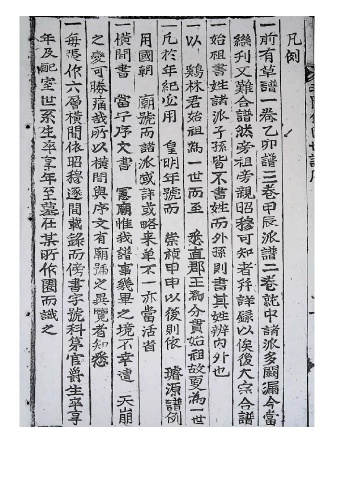 凡例
一前有草譜一卷乙卯譜三卷甲辰派譜二卷記中諸派多闕漏今當
繼刊又難合譜然旁祖旁親昭穆可知者幷詳錄以俟後大宗合譜
一始祖書姓諸子孫皆不書姓而外孫則書其姓辨內外也
一以 鷄林君始祖爲一世而至 悉直郡王爲分貫始祖故更爲一世
一凡於年紀必用 皇明年號而 崇禎甲申以後則依 璿源譜例
用國朝 廟號而諸派或詳或略來單不一亦當活看
一橫間書 當子序文書 憲廟惟我諸事幾畢之境不幸遭 天崩
之變可勝痛哉所以橫間與序文有廟號之異覽者知悉
一每張作六層橫間依昭穆逐間載錄而傍書字號科第官爵生卒享
年及配室世系生卒享年至墓在某所作圈而識之